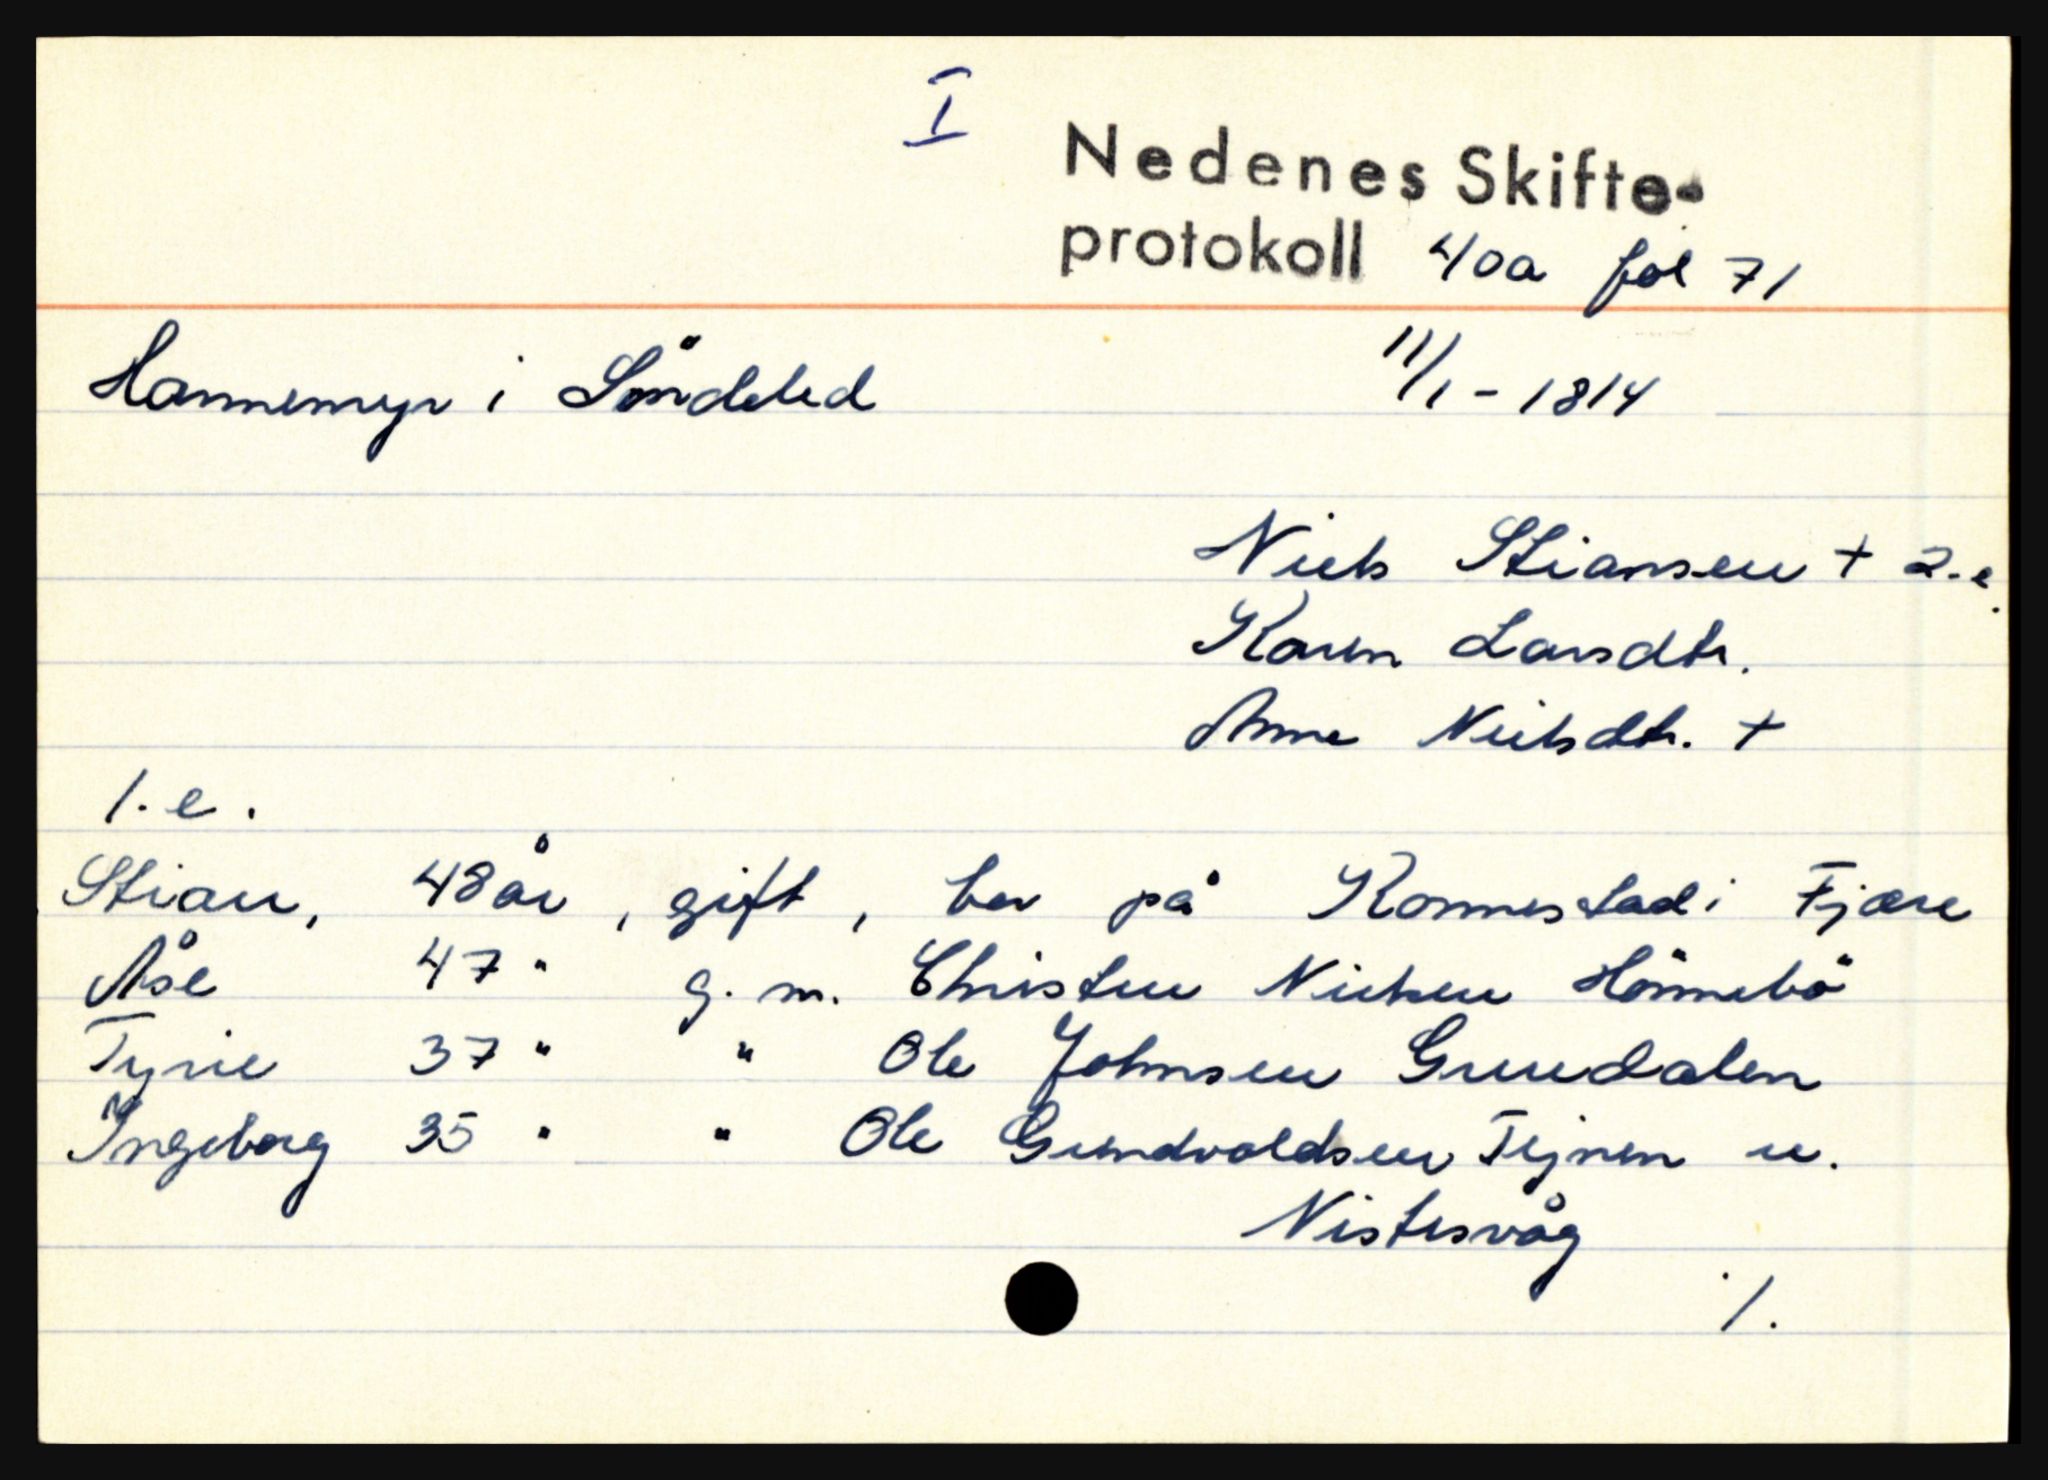 I
Nedenes Skifte-
protokoll 40a fol 71
Hammemyr i Söndeled 11/1 - 1814
Niels Stiansen + 2.e.
Karen Larsdtr.
Anne Nielsdtr. +
1.e.
Stian, 48 år, gift, bor på Ronnestad i Fjære
Åse 47 " g.m. Christen Nielsen Hömmebö
Tyrie 37 " " Ole Johnsen Gruudalen
Ingeborg 35 " " Ole Gundvoldsen Tejnen u.
Nistesvåg
./.